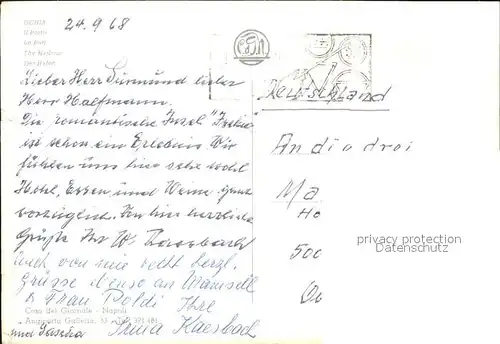 24.9.68
ISCHIA
Il Porto
Le Port
The Harbour
Der Hafen
Lieber Herr Surmund lieber
Herr Halfmann.
Die romantische Insel "Ischia"
ist schon ein Erlebnis. Wir
fühlen uns hier sehr wohl
Hotel, Essen und Weine ganz
vorzüglich. Ihnen herzliche
Grüße Ihr W. Kaesbach
Auch von mir recht herzl.
Grüsse ebenso an Mamsell
& Frau Poldi Ihre
Irma Kaesbach
und Sascha
Casa del Giornale - Napoli
Deutschland
An die drei
Ma
Ho
500
privacy protection
Datenschutz